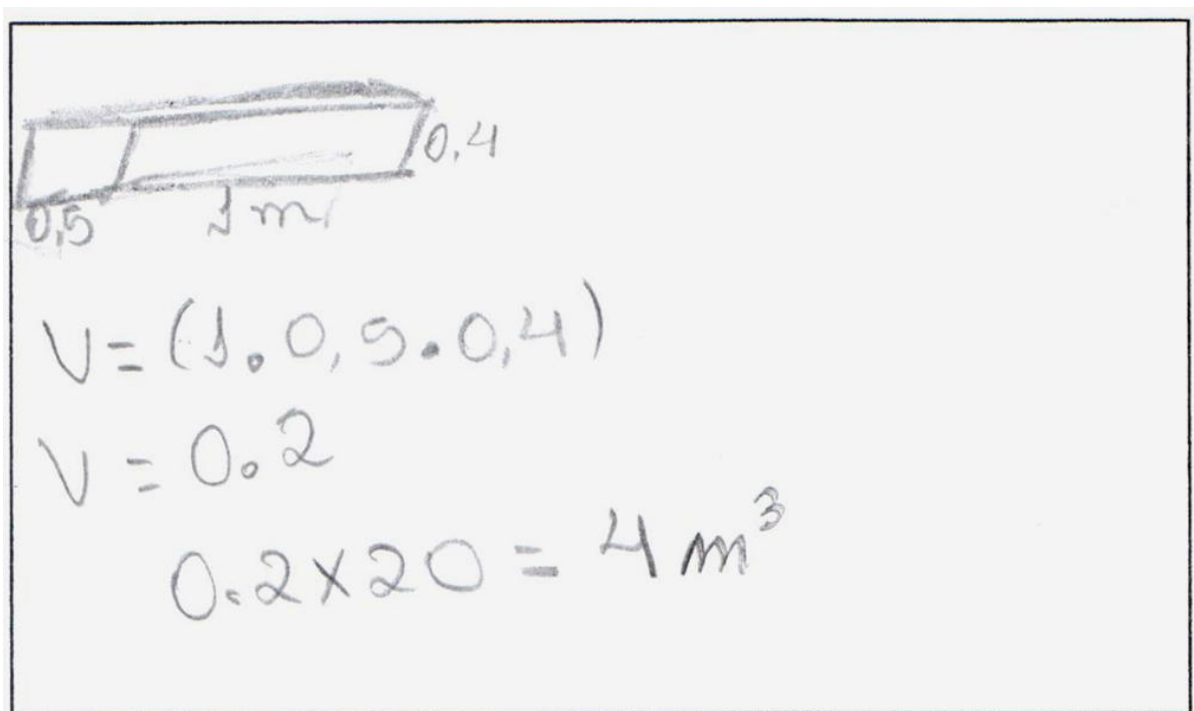 0.4
0,5 1m
V=(1.0,5.0,4)
V=0.2
0.2x20=4m³